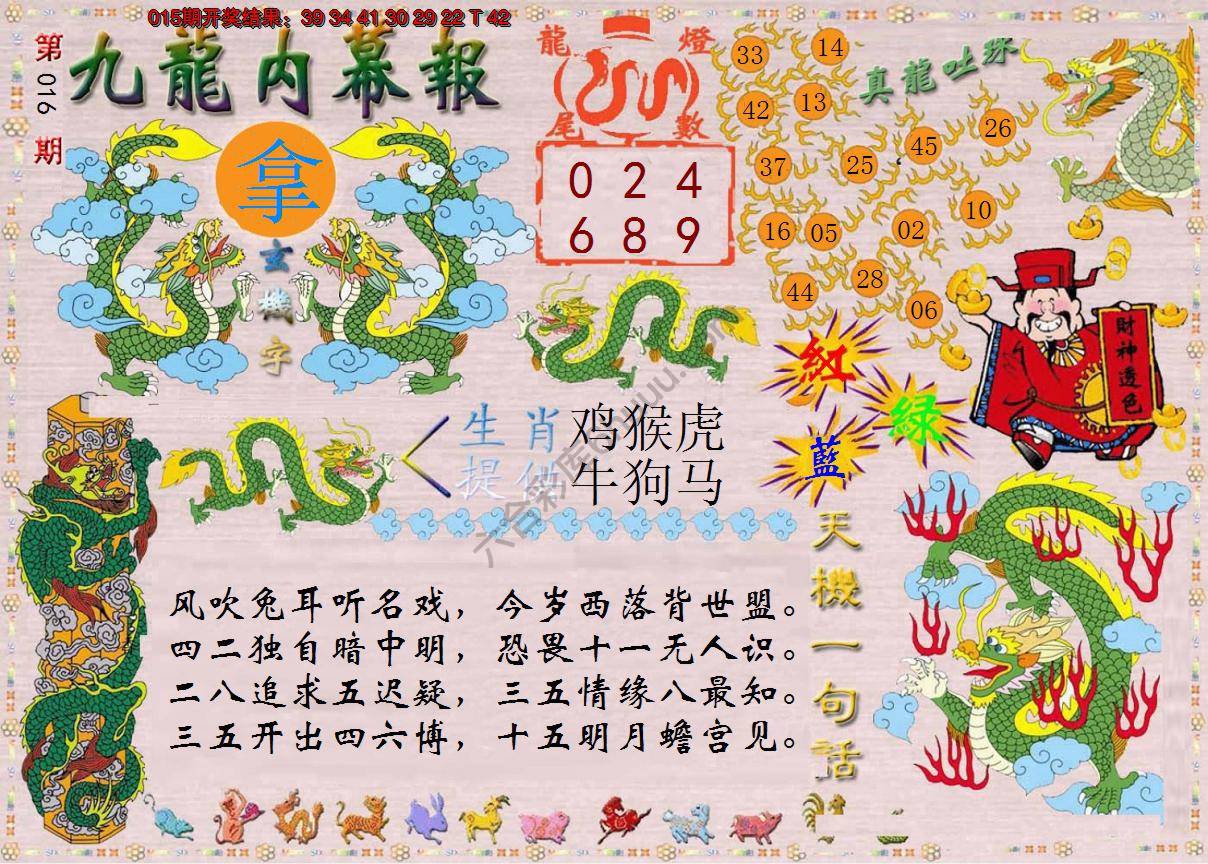 015期开奖结果：39 34 41 30 29 22 T 42
第016期
九龍内幕報
拿
玄機字
龍燈尾數
0 2 4
6 8 9
真龍吐珠
33 14
42 13
45 26
37 25
10
16 05 02
28
44
06
財神透色
紅
綠
藍
生肖 鸡猴虎
提供 牛狗马
天機一句話
风吹兔耳听名戏，今岁西落背世盟。
四二独自暗中明，恐畏十一无人识。
二八追求五迟疑，三五情缘八最知。
三五开出四六博，十五明月蟾宫见。